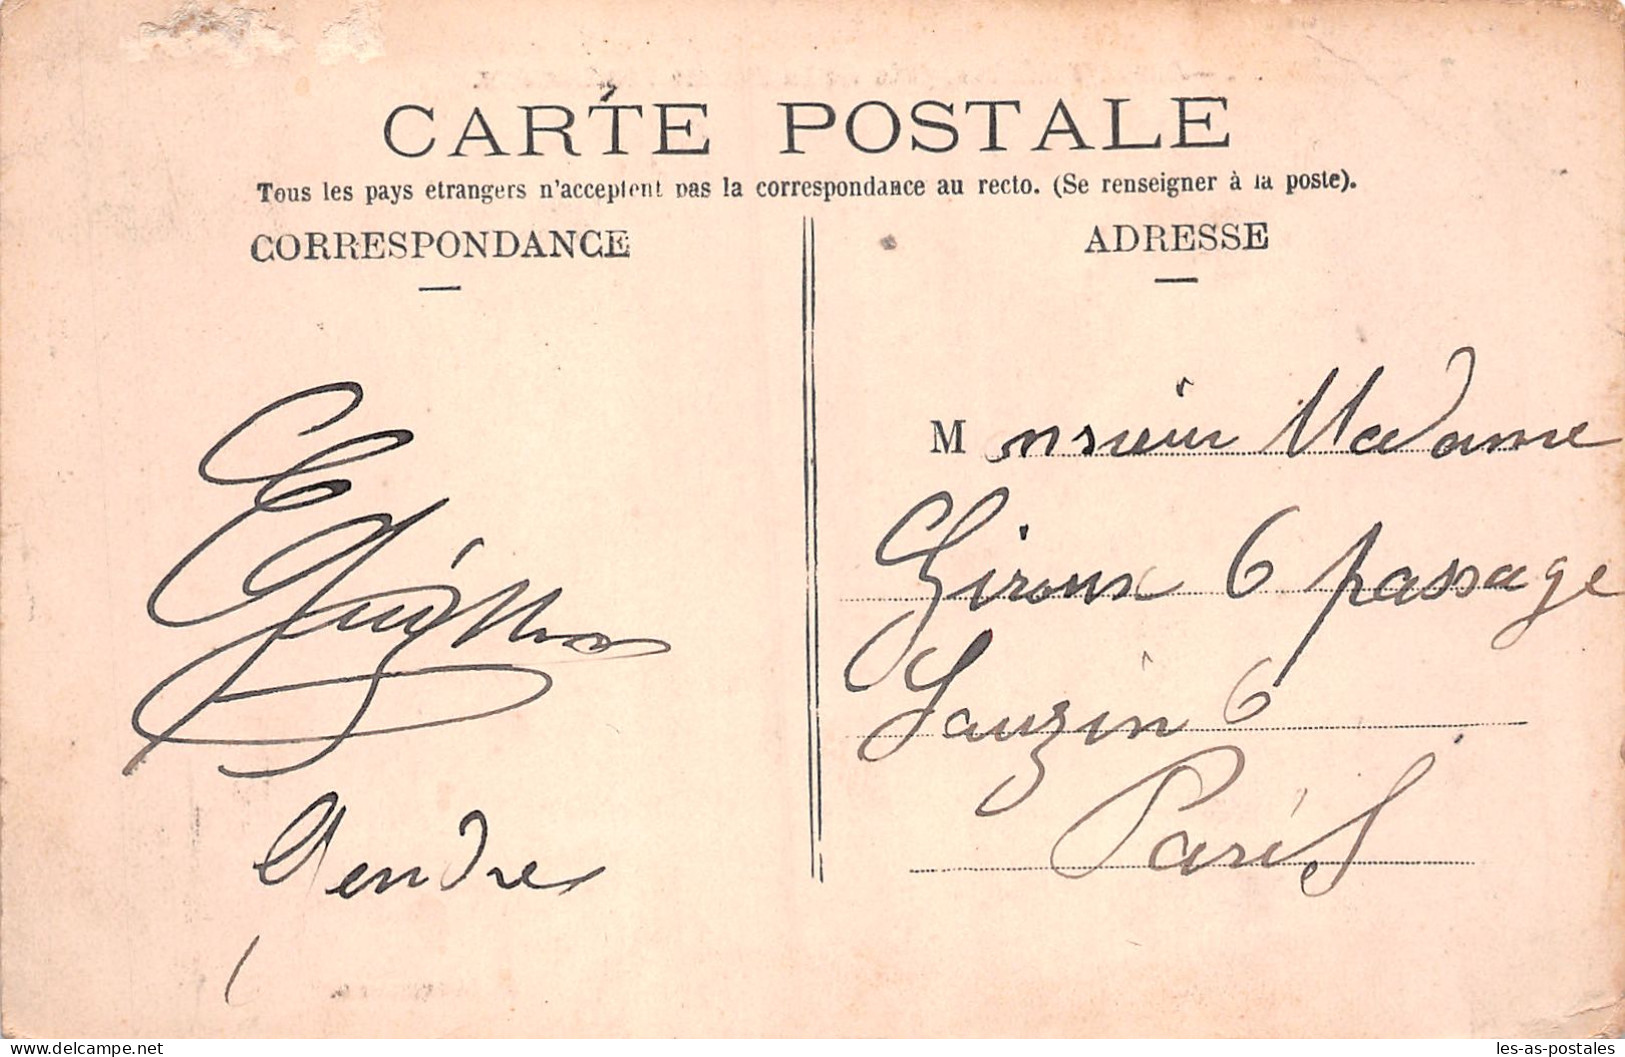 CARTE POSTALE
Tous les pays étrangers n'acceptent pas la correspondance au recto. (Se renseigner à la poste).
CORRESPONDANCE
ADRESSE
Monsieur Madame
Giroux 6 passage
Lauzin 6
Paris
Gendre
delcampe.net
les-as-postales